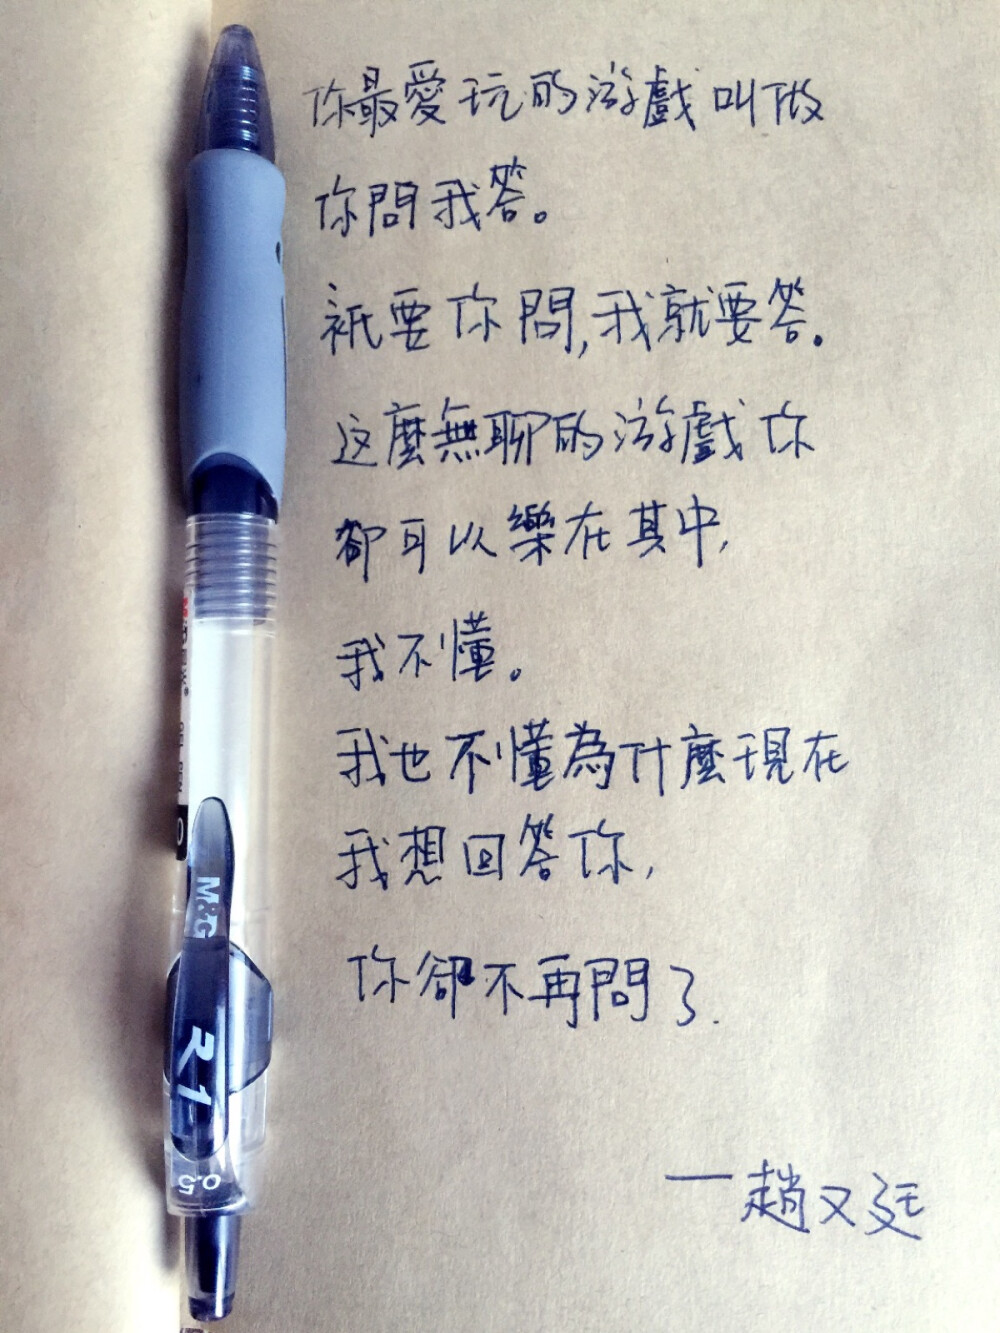 你最愛玩的游戲叫做
你問我答。
衹要你問,我就要答.
这麼無聊的游戲你
卻可以樂在其中,
我不懂。
我也不懂為什麼現在
我想回答你,
你卻不再問了.
—趙又廷
M&G
R1
0.5